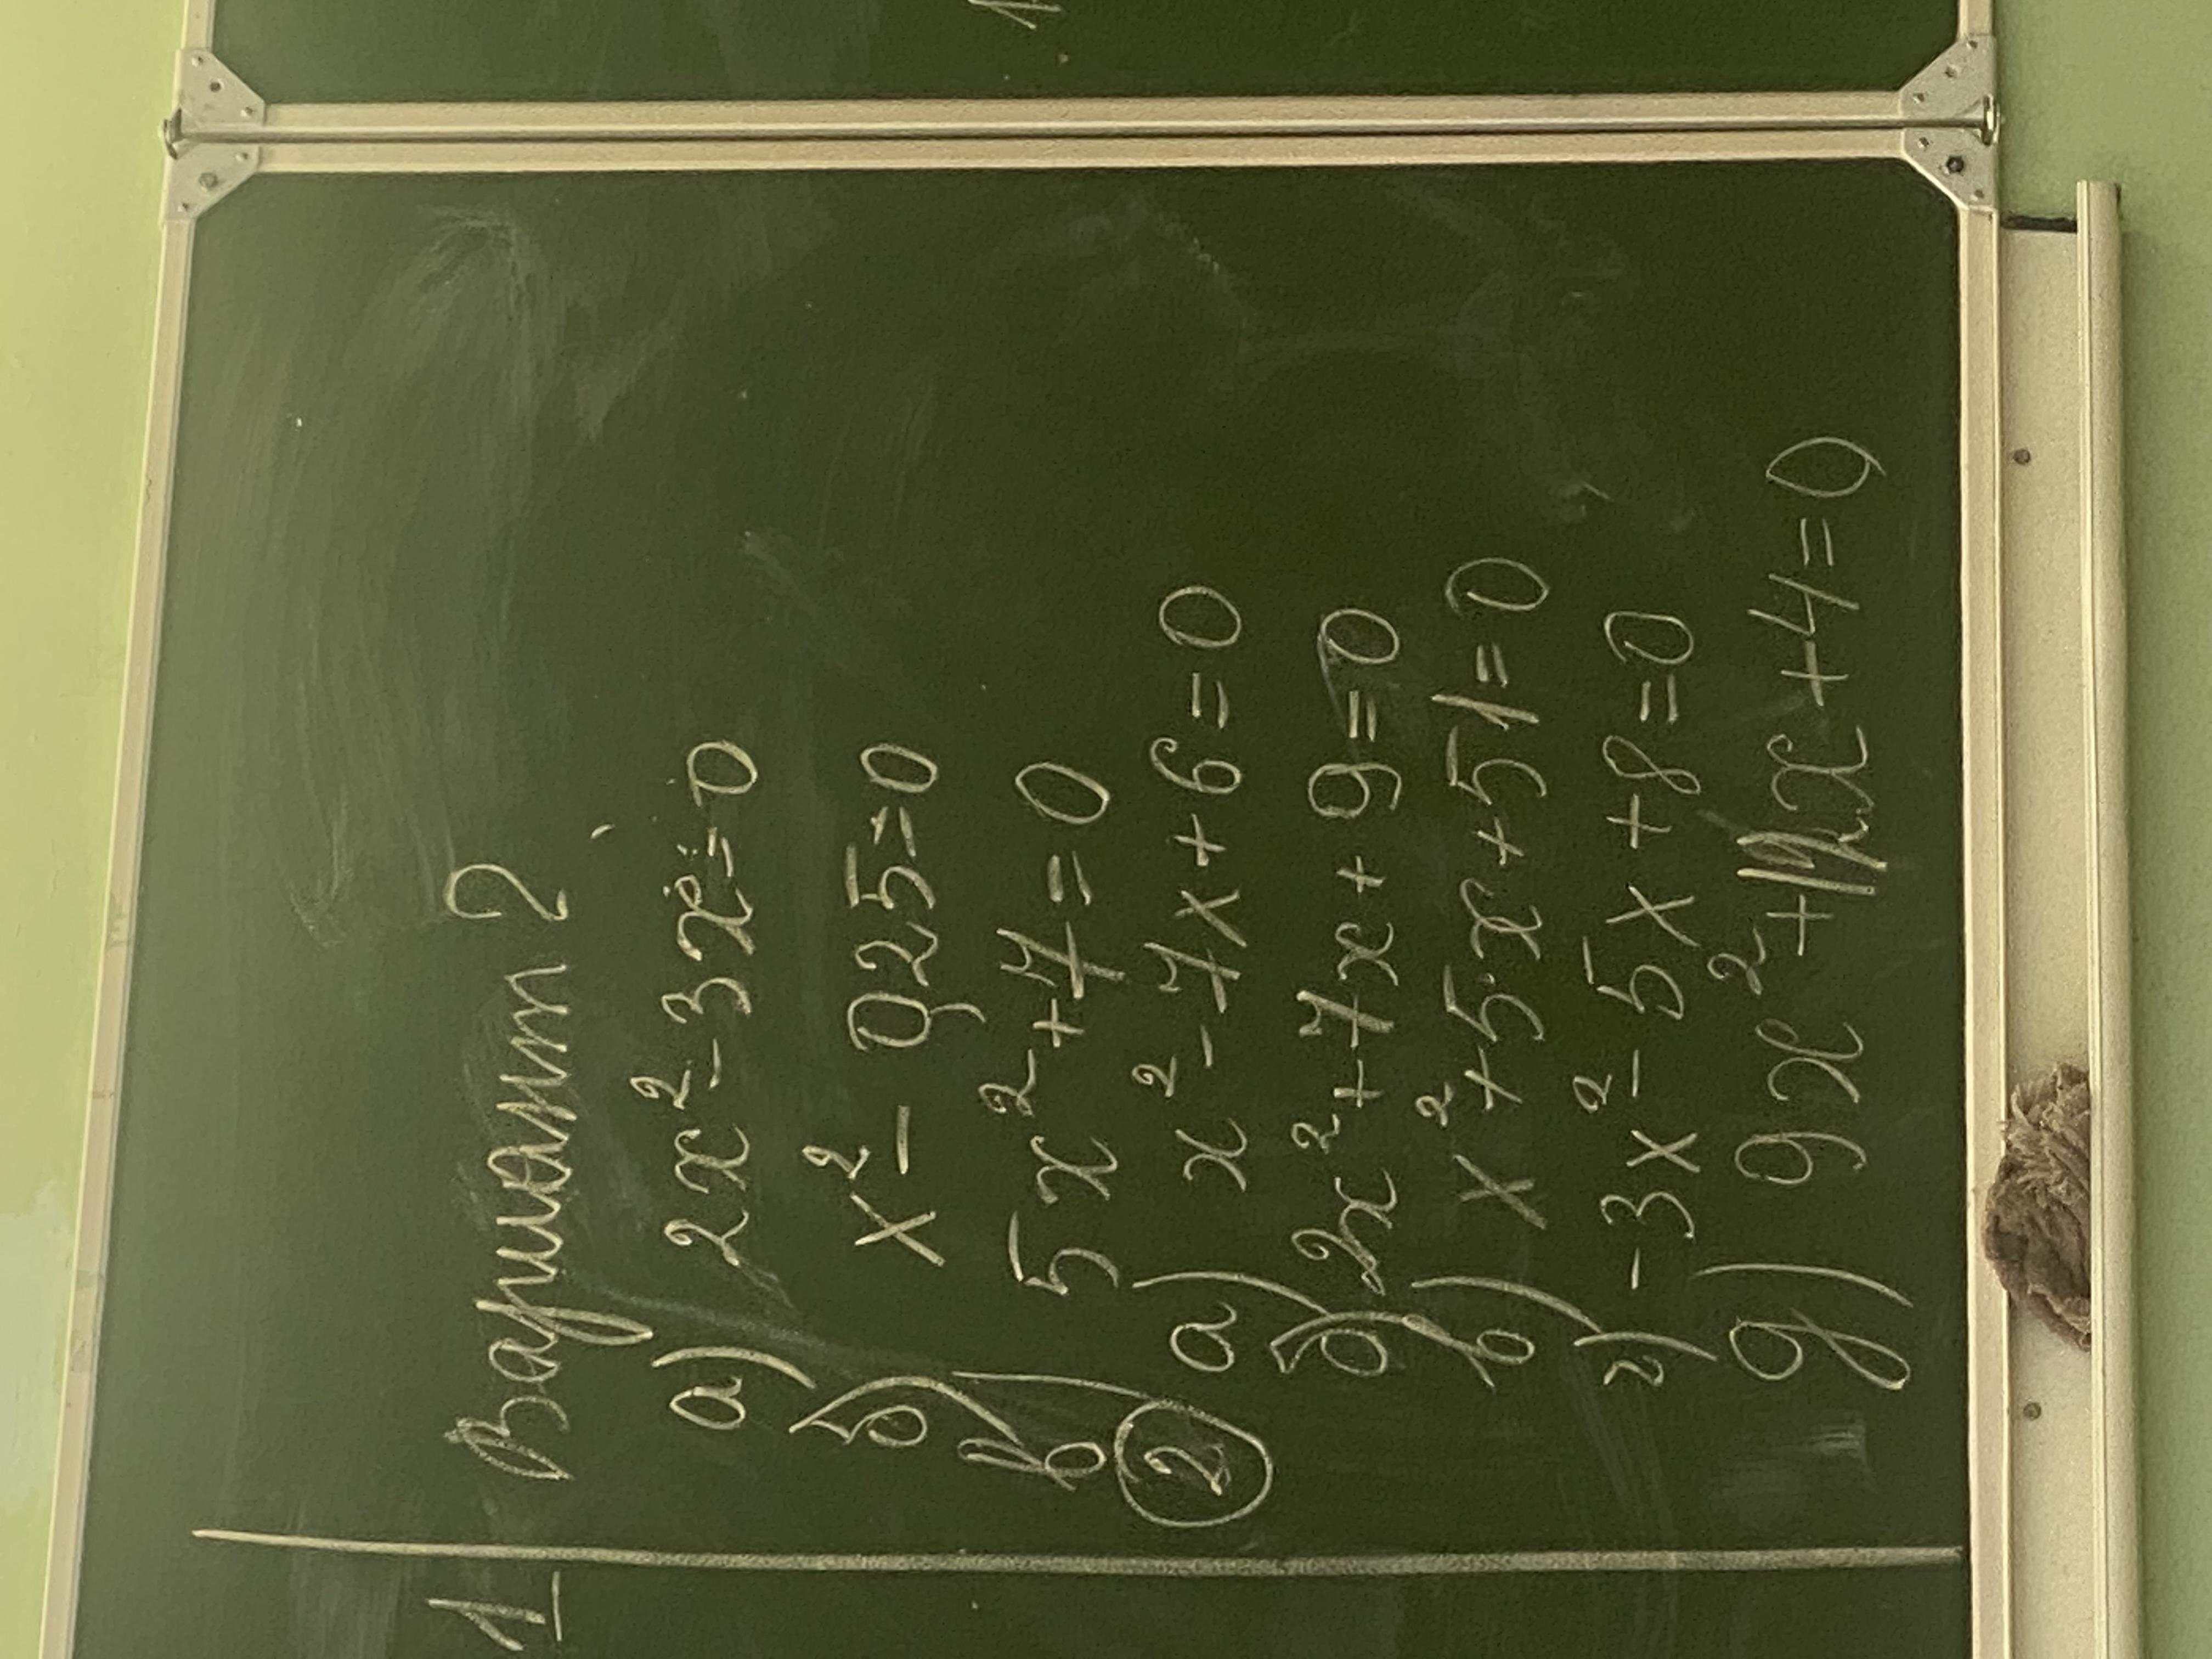 Вариант 2
а) 2x² - 3x = 0
б) x² - 0,25 = 0
в) 5x² + 7 = 0
②
а) x² - 7x + 6 = 0
б) 2x² + 7x + 9 = 0
в) x² + 5x + 51 = 0
г) -3x² - 5x + 8 = 0
д) 9x² + 12x + 4 = 0
1